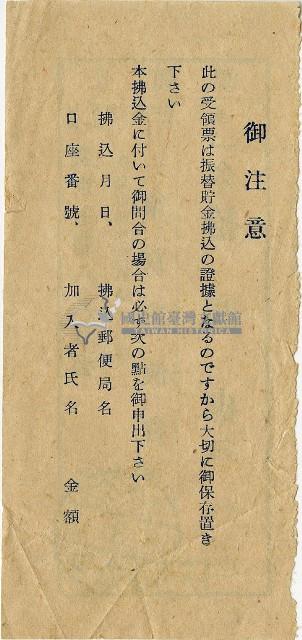 御注意
此の受領票は振替貯金拂込の證據となるのですから大切に御保存置き
下さい
本拂込金に付いて御問合の場合は必ず次の點を御申出下さい
拂込月日、 拂込郵便局名
口座番號、 加入者氏名 金額
國史館臺灣文獻館
TAIWAN HISTORICA